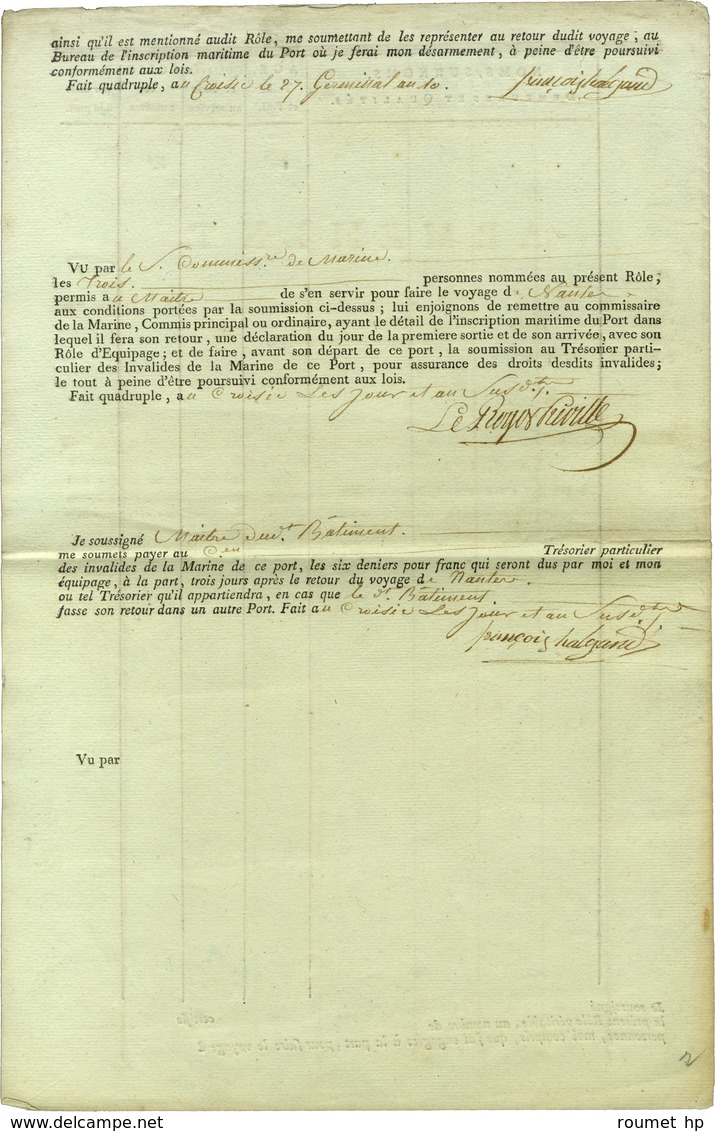 ainsi qu'il est mentionné audit Rôle, me soumettant de les représenter au retour dudit voyage, au
Bureau de l'inscription maritime du Port où je ferai mon désarmement, à peine d'être poursuivi
conformément aux lois.
Fait quadruple, au Croisic le 27 Germinal an 10. françois halgand
VU par le S. Commiss.re de Marine
les Trois. personnes nommées au présent Rôle;
permis au Maitre de s'en servir pour faire le voyage de Nantes
aux conditions portées par la soumission ci-dessus; lui enjoignons de remettre au commissaire
de la Marine, Commis principal ou ordinaire, ayant le détail de l'inscription maritime du Port dans
lequel il fera son retour, une déclaration du jour de la premiere sortie et de son arrivée, avec son
Rôle d'Equipage; et de faire, avant son départ de ce port, la soumission au Trésorier parti-
culier des Invalides de la Marine de ce Port, pour assurance des droits desdits invalides;
le tout à peine d'être poursuivi conformément aux lois.
Fait quadruple, au Croisic Les Jour et an Susd.ts
Le Royer
Je soussigné Maitre dud.t Bâtiment.
me soumets payer au C.en Trésorier particulier
des invalides de la Marine de ce port, les six deniers pour franc qui seront dus par moi et mon
équipage, à la part, trois jours après le retour du voyage de Nantes
ou tel Trésorier qu'il appartiendra, en cas que le d. Bâtiment
fasse son retour dans un autre Port. Fait au Croisic Les Jour et an Susd.ts
françois halgand
Vu par
Je soussigné
le présent Rôle véritable, au nombre de certifie
personnes, moi compris, qui sont engagées à la part, pour faire le voyage d
2
roumet hp